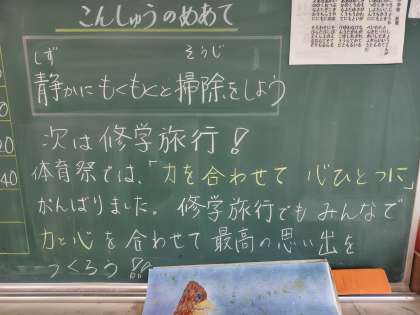 こんしゅうのめあて
しず そうじ
静かにもくもくと掃除をしよう
次は修学旅行！
体育祭では、「力を合わせて 心ひとつに」
がんばりました。修学旅行でもみんなで
力と心を合わせて最高の思い出を
つくろう!!
20
40